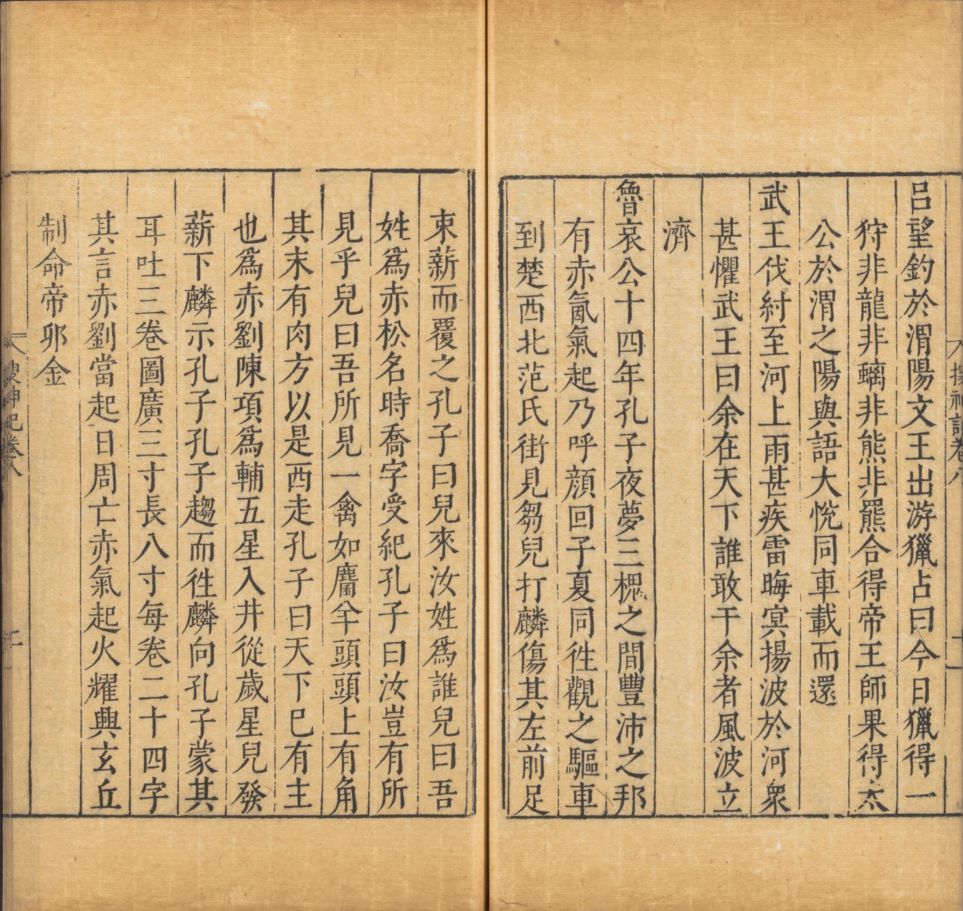 搜神記卷八
呂望釣於渭陽文王出游獵占曰今日獵得一
狩非龍非螭非熊非羆合得帝王師果得太
公於渭之陽與語大悅同車載而還
武王伐紂至河上雨甚疾雷晦冥揚波於河眾
甚懼武王曰余在天下誰敢干余者風波立
濟
魯哀公十四年孔子夜夢三槐之間豐沛之邦
有赤氤氣起乃呼顏回子夏同往觀之驅車
到楚西北范氏街見芻兒打麟傷其左前足
束薪而覆之孔子曰兒來汝姓為誰兒曰吾
姓為赤松名時喬字受紀孔子曰汝豈有所
見乎兒曰吾所見一禽如麕羊頭頭上有角
其末有肉方以是西走孔子曰天下巳有主
也為赤劉陳項為輔五星入井從歲星兒發
薪下麟示孔子孔子趨而往麟向孔子蒙其
耳吐三卷圖廣三寸長八寸每卷二十四字
其言赤劉當起日周亡赤氣起火耀興玄丘
制命帝卯金
搜神記卷八